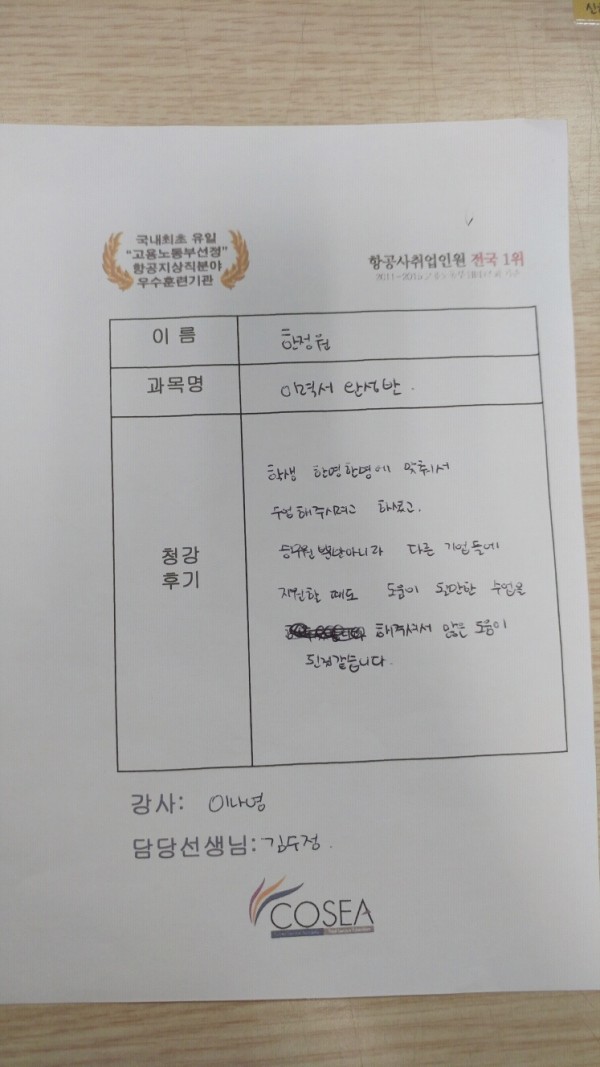 국내최초 유일
“고용노동부선정”
항공지상직분야
우수훈련기관
항공사취업인원 전국 1위
이 름
한정원
과목명
이력서 완성반.
청강
후기
학생 한명한명에 맞춰서
수업해주시려고 하셨고.
승무원 뿐만아니라 다른 기업들에
지원할 때도 도움이 될만한 수업을
해주셔서 많은 도움이
된것같습니다.
강사: 이나영
담당선생님: 김수정.
COSEA